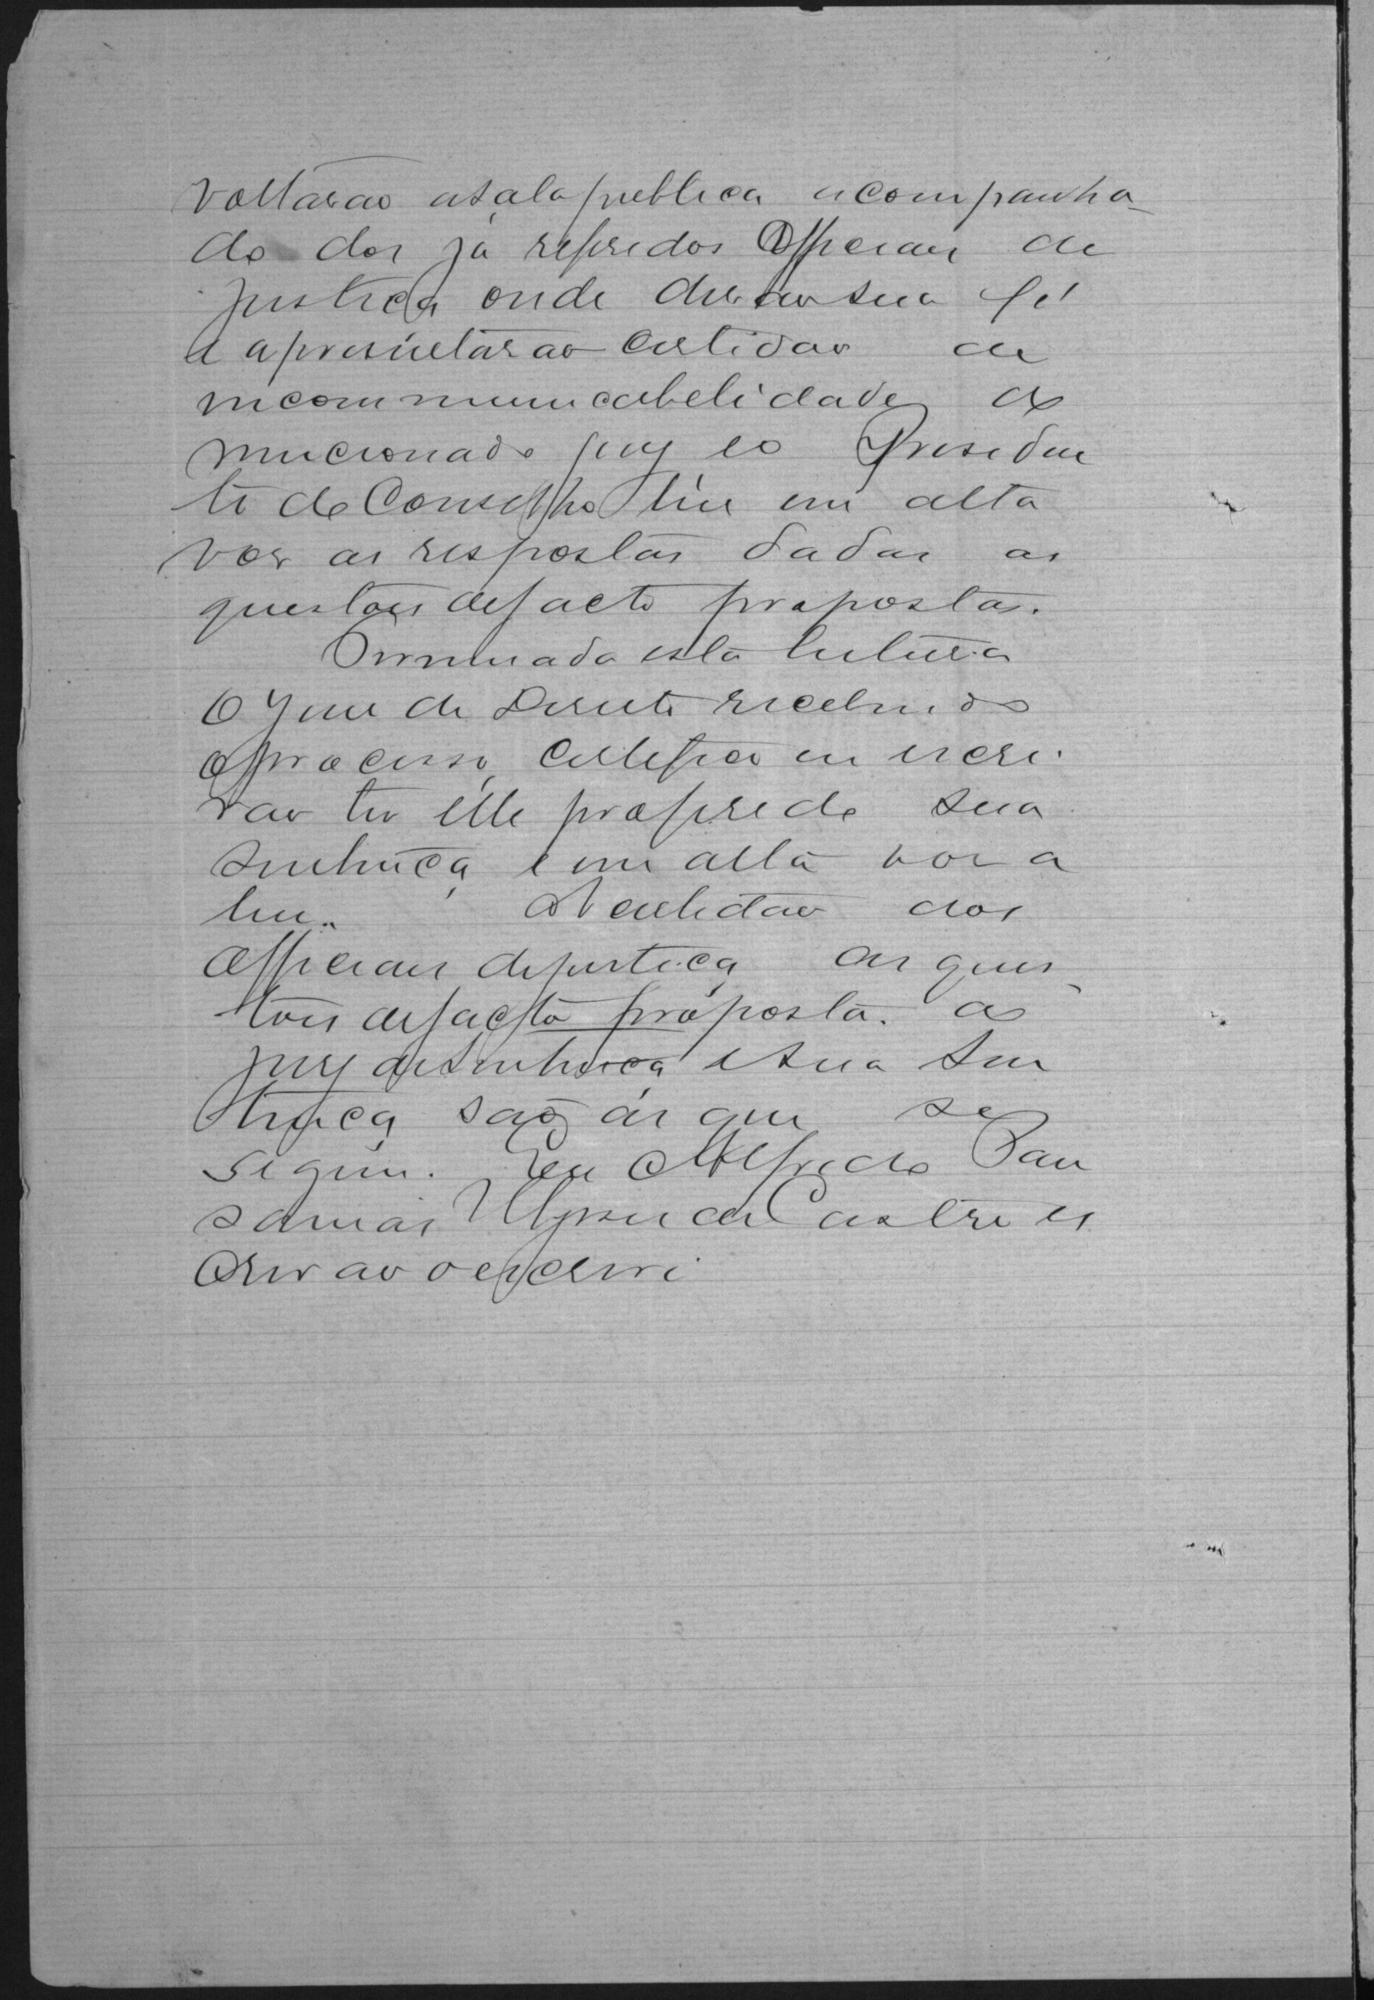 voltarão a sala publica acompanha-
do dos já referidos Officiaes de
justiça onde derão sua fé
e apresentarão certidão de
incommunicabelidade do
mencionado jury e o Presiden
te do Conselho leu em alta
voz as respostas dadas as
questões de facto propostas.
Terminada esta leitura
O Juiz de Direito recebendo
o processo, certifico eu escri
vão ter elle proferido sua
sentença e em alta voz a
leu. A certidão dos
Officiaes de justiça as ques
tões de facto proposta. ao
jury de sentença e sua sen
tença são as que se
seguem. Eu Alfredo Pau
de Castro es
crivão o escrevi